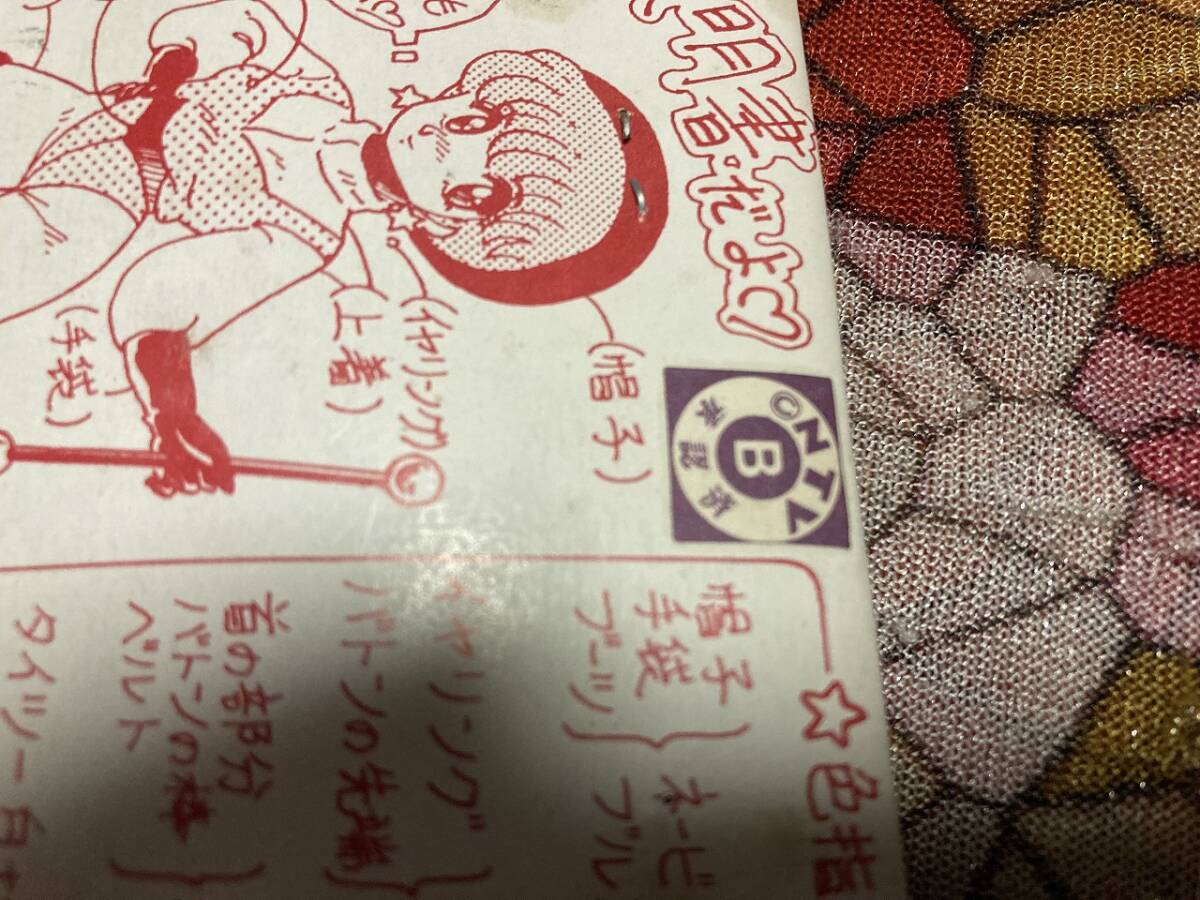 明書・だよ♡
も
(帽子)
(イヤリング)
(上着)
(手袋)
©NTV
B
承認
☆色指
帽子
手袋
ブーツ
}
ネービ
ブル
イヤリング
バトンの先端
}
首の部分
バトンの棒
ベルト
}
タイツー白